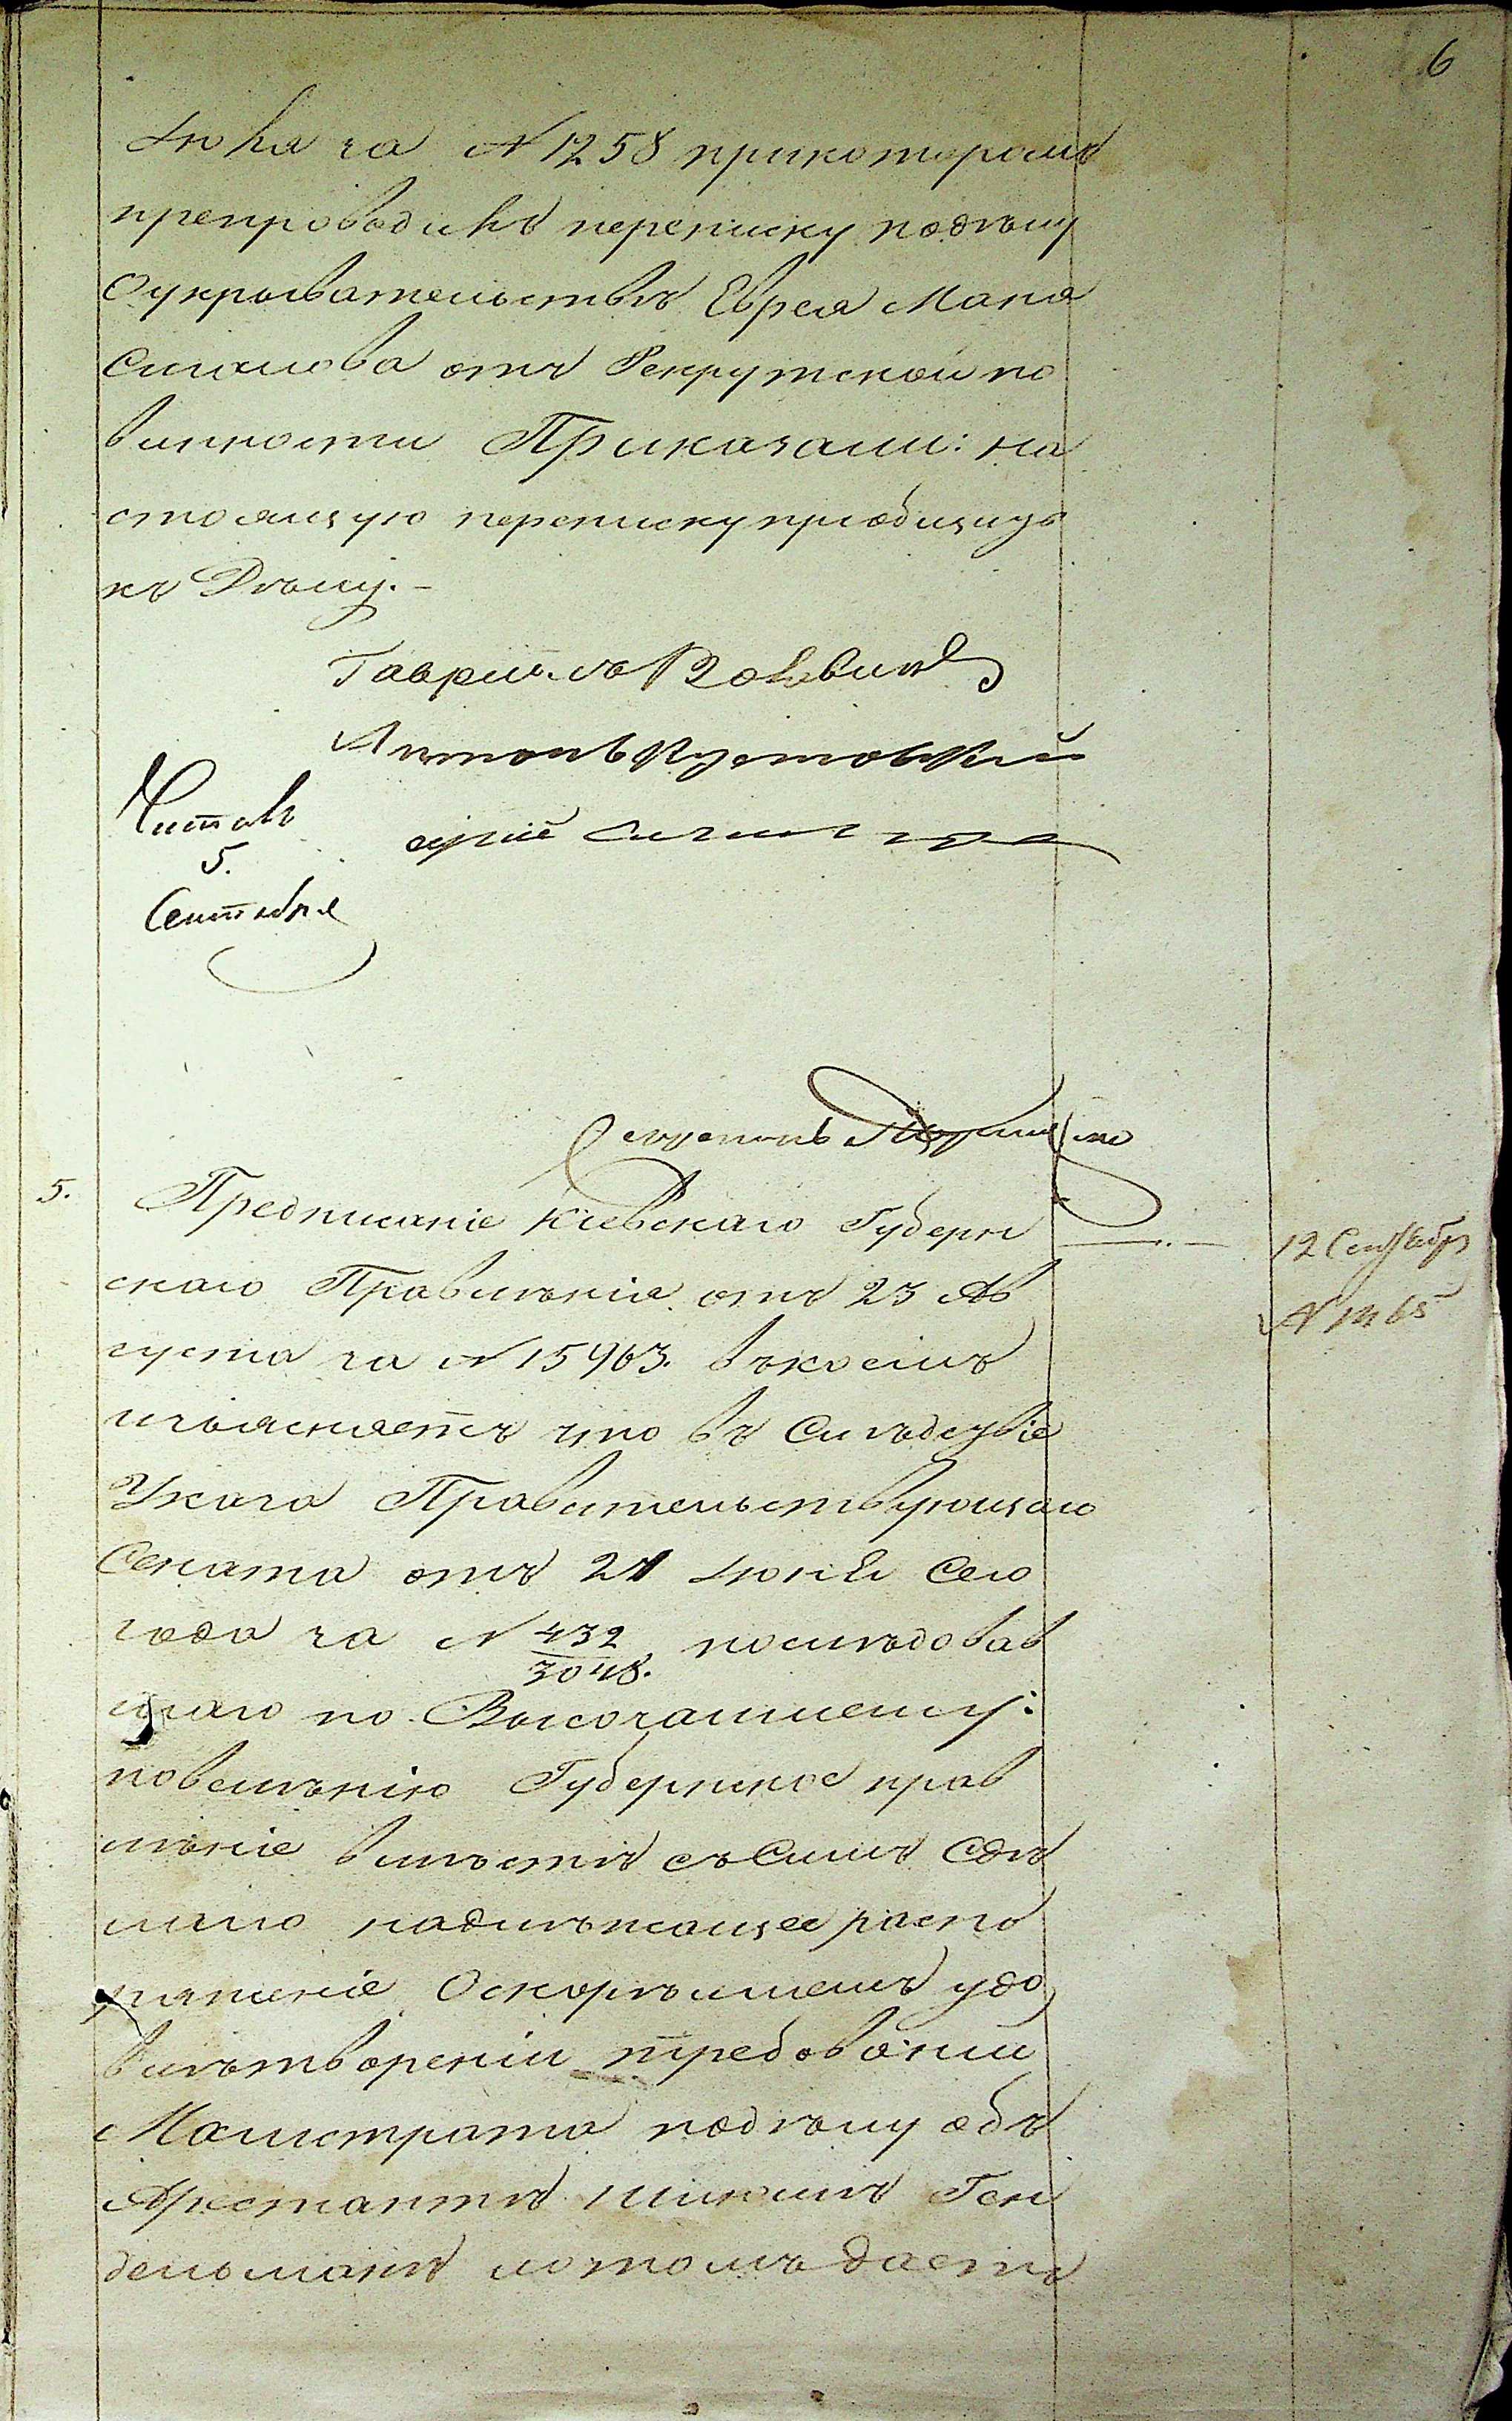 6
Июля за N 1258 прикоторомъ
препроводилъ переписку подѣлу
Оукрывательствѣ Еврея Мана
Смилова отъ Рекрутской по
винности Приказали: на
стоящую переписку приобщить
къ Дѣлу.-
Гаврилъ
Антонъ
Читалъ
5.
Сентября
Секретарь
5.
Предписаніе Кіевскаго Губерн
скаго Правленія отъ 23 Ав
густа за N 15963. въкоемъ
изъясняетъ что въ Слѣдствіе
Указа Правительствующаго
Сената отъ 21 Іюня Сего
года за N 432/3048. послѣдовав
шаго по Высочайшему:
повелѣнію Губернское прав
лѣніе вмѣстѣ съСимъ Сдѣ
лало надлѣжащее распо
ряженіе Оскорѣйшемъ удо
влѣтвореніи требованіи
Магистрата подѣлу объ
Арестантѣ Шмилѣ Ген
дельманѣ итомъ даетъ
12 Сентября
N 1465